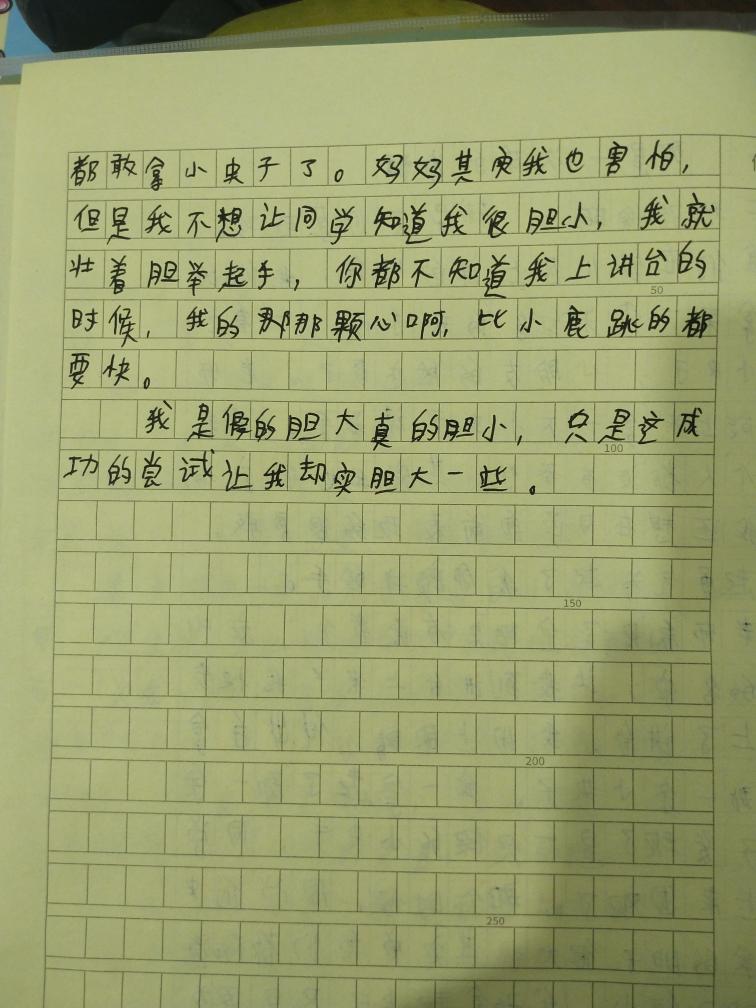 都敢拿小虫子了。妈妈其实我也害怕，
但是我不想让同学知道我很胆小，我就
壮着胆举起手，你都不知道我上讲台的
50
时候，我的那那颗心啊，比小鹿跳的都
要快。
我是假的胆大真的胆小，只是这成
100
功的尝试让我却实胆大一些。
150
200
250